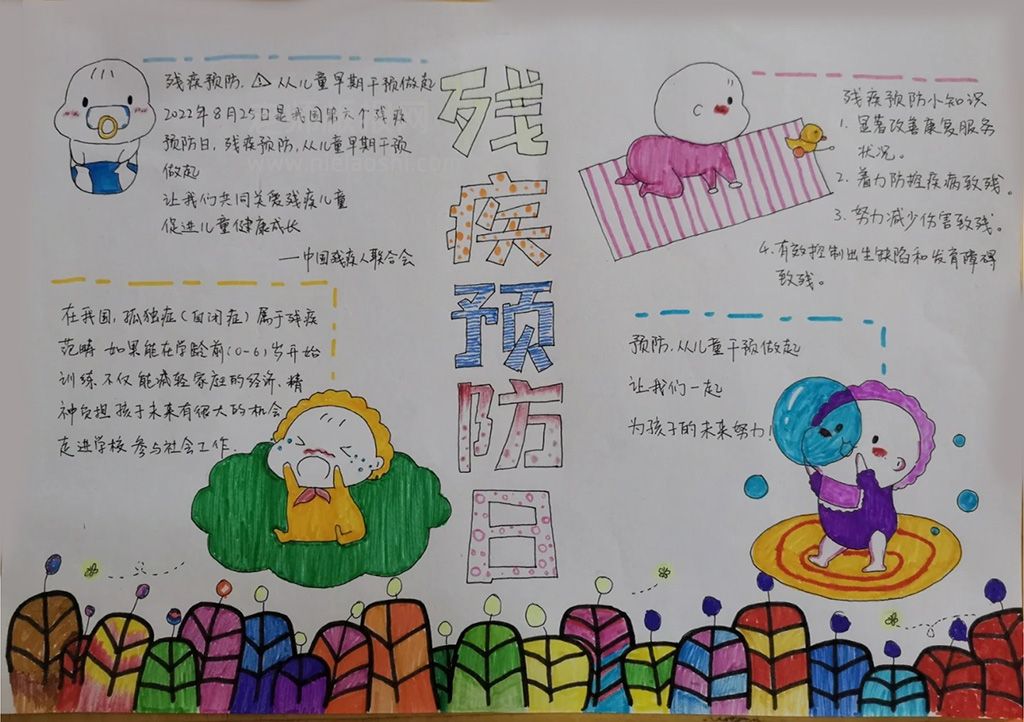 残疾预防日
残疾预防,从儿童早期干预做起
2022年8月25日是我国第六个残疾
预防日,残疾预防,从儿童早期干预
做起
让我们共同关爱残疾儿童
促进儿童健康成长
—中国残疾人联合会
在我国,孤独症(自闭症)属于残疾
范畴 如果能在学龄前(0-6)岁开始
训练 不仅能减轻家庭的经济、精
神负担 孩子未来有很大的机会
走进学校 参与社会工作.
残疾预防小知识
1. 显著改善康复服务
状况。
2. 着力防控疾病致残。
3. 努力减少伤害致残。
4.有效控制出生缺陷和发育障碍
致残。
预防.从儿童干预做起
让我们一起
为孩子的未来努力!